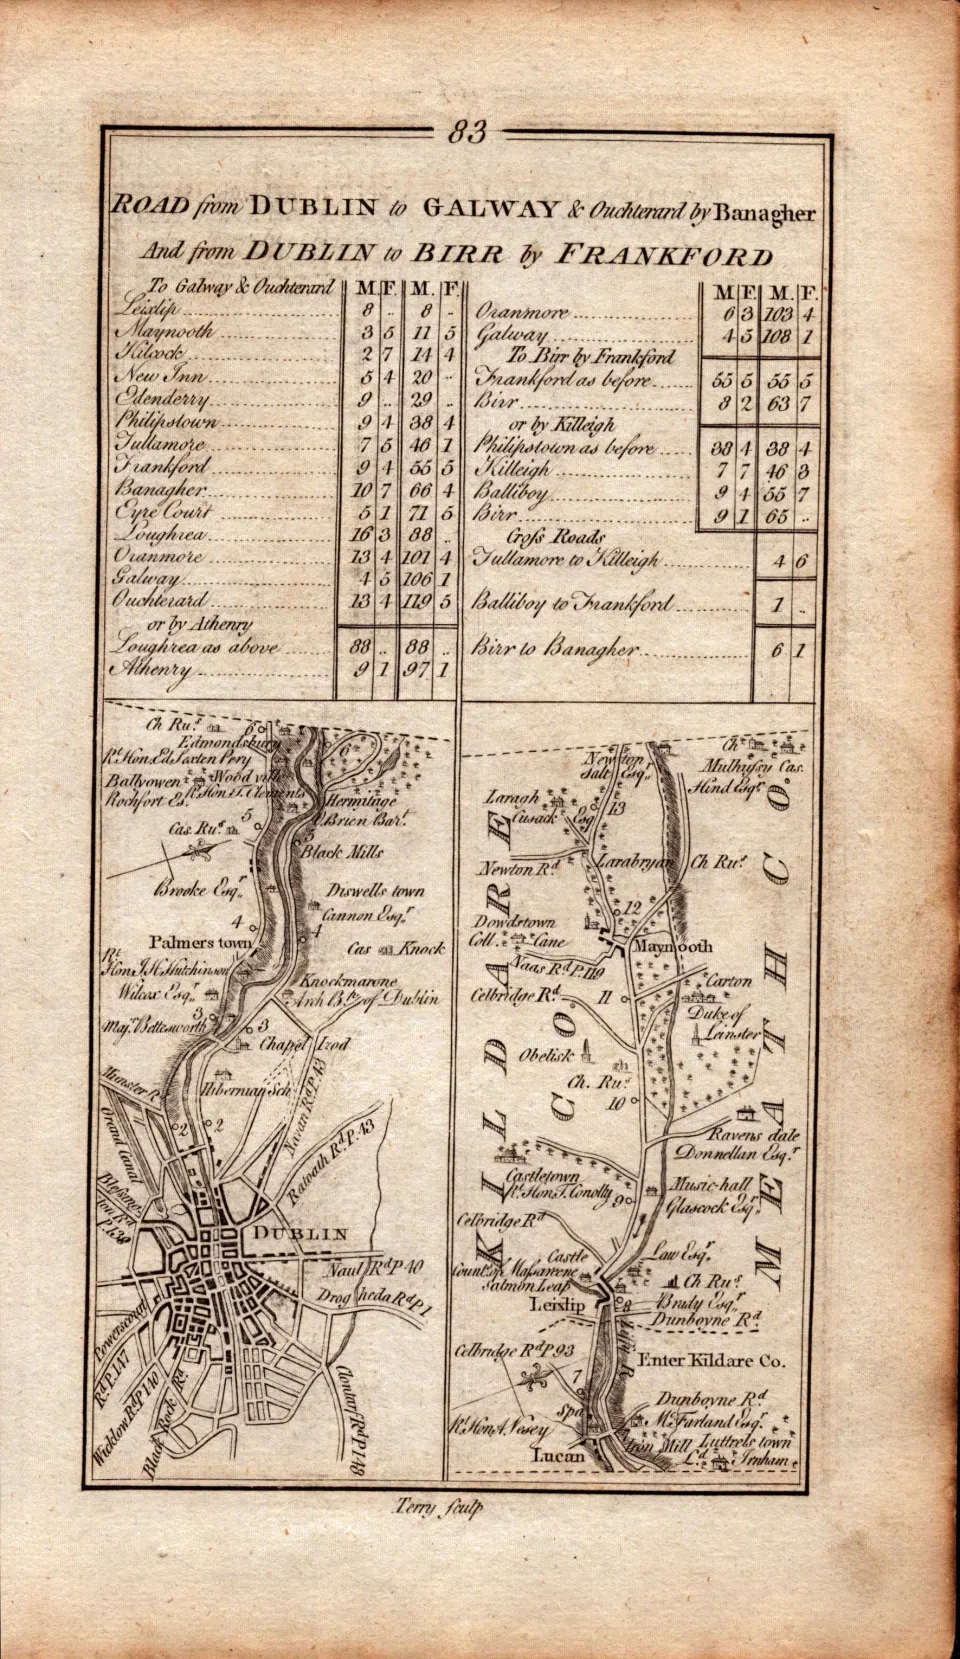 83
ROAD from DUBLIN to GALWAY & Ouchterard by Banagher
And from DUBLIN to BIRR by FRANKFORD
To Galway & Ouchterard M. F. M. F.
Leixlip 8 .. 8 ..
Maynooth 3 5 11 5
Kilcock 2 7 14 4
New Inn 5 4 20 ..
Edenderry 9 .. 29 ..
Philipstown 9 4 38 4
Tullamore 7 5 46 1
Frankford 9 4 55 5
Banagher 10 7 66 4
Eyre Court 5 1 71 5
Loughrea 16 3 88 ..
Oranmore 13 4 101 4
Galway 4 5 106 1
Ouchterard 13 4 119 5
or by Athenry
Loughrea as above 88 .. 88 ..
Athenry 9 1 97 1
M. F. M. F.
Oranmore 6 3 103 4
Galway 4 5 108 1
To Birr by Frankford
Frankford as before 55 5 55 5
Birr 8 2 63 7
or by Killeigh
Philipstown as before 38 4 38 4
Killeigh 7 7 46 3
Balliboy 9 4 55 7
Birr 9 1 65 ..
Croſs Roads
Tullamore to Killeigh 4 6
Balliboy to Frankford 1 ..
Birr to Banagher 6 1
Ch Ru.s
6
Edmondsbury
Rt. Hon. Ed. Sexten Pery
6
Ballyowen
Wood ville
Rochfort Es.
Rt. Hon T. Clements
Hermitage
Brien Bart.
5
Cas. Ru.s
5
Black Mills
Brooke Esqr.
Diswells town
Cannon Esqr.
4
4
Palmers town
Cas Knock
Rt.
Hon J H Hutchinson
Knockmarone
Wilcox Esqr.
Arch Bp. of Dublin
3
Majr. Bettesworth
3
Chapel Izod
Hibernian Sch
Munster R.
Navan Rd P. 43
2
2
Grand Canal
Ratoath Rd P. 43
Blesing
ton Rd
P. 138
DUBLIN
Naul Rd P 40
Drogheda Rd P 1
Powerscourt
Rd P. 147
Wicklow Rd P 140
Black Rock Rd
Clontarf Rd P 148
Newton
Salt Esqr.
Ch
Mulhuſsy Cas.
Hind Esqr.
Laragh
Cusack Esq
13
Newton Rd
Larabryan
Ch Ru.s
12
Dowdstown
Coll. Cane
Maynooth
Naas Rd P. 119
Carton
Celbridge Rd.
11
Duke of
Leinster
Obelisk
Ch. Ru.s
10
Ravens dale
Donnellan Esqr.
Castletown
Rt Hon T. Conolly
9
Music-hall
Glascock Esqr.
Celbridge Rd
Castle
Law Esqr.
Counts. of Maſsareene
Salmon Leap
Ch Ru.s
Leixlip
8
Brady Esqr.
Dunboyne Rd.
Celbridge Rd P. 93
Liffy R.
Enter Kildare Co.
7
Dunboyne Rd
Spa
Mc. Farland Esqr.
Rt. Hon A. Vesey
Iron Mill
Luttrels town
Lucan
Ld. Irnham
KILDARE CO
MEATH CO.
Terry sculp